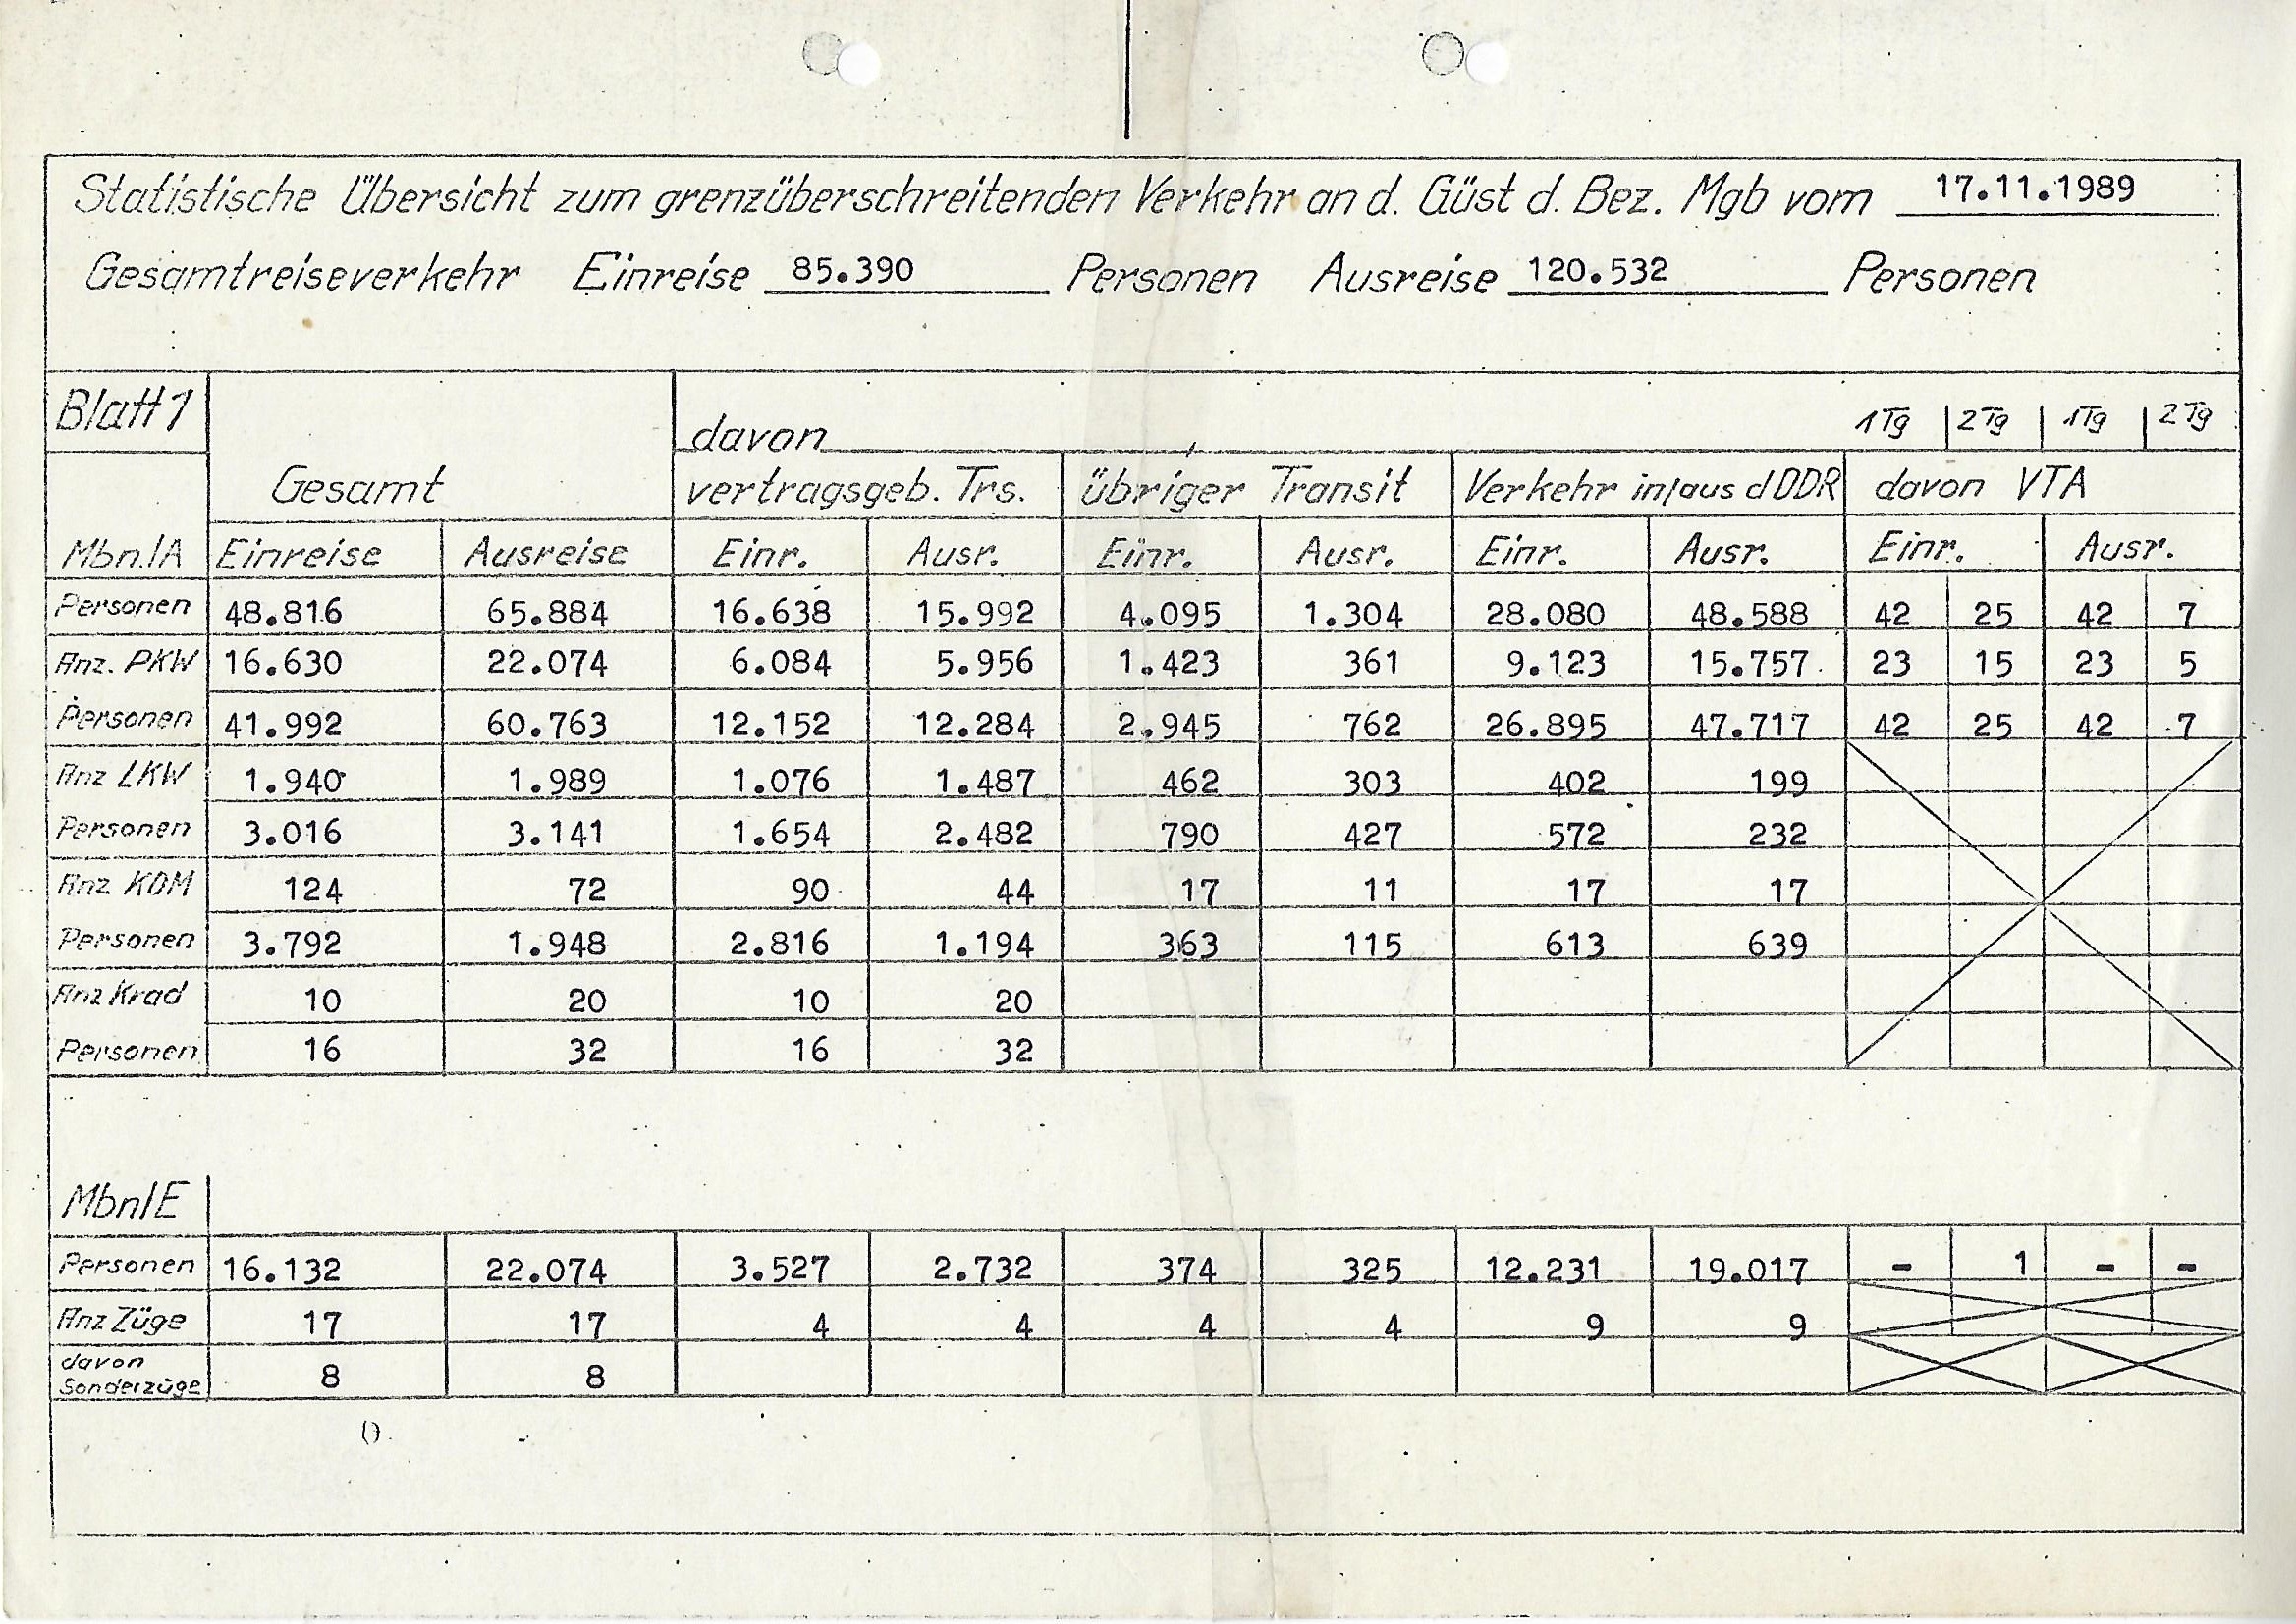 Statistische Übersicht zum grenzüberschreitenden Verkehr an d. Güst d. Bez. Mgb vom 17.11.1989
Gesamtreiseverkehr Einreise 85.390 Personen Ausreise 120.532 Personen
Blatt 1 davon 1 Tg 2 Tg 1 Tg 2 Tg
Gesamt vertragsgeb. Trs. übriger Transit Verkehr in/aus d DDR davon VTA
Mbn./A Einreise Ausreise Einr. Ausr. Einr. Ausr. Einr. Ausr. Einr. Ausr.
Personen 48.816 65.884 16.638 15.992 4.095 1.304 28.080 48.588 42 25 42 7
Anz. PKW 16.630 22.074 6.084 5.956 1.423 361 9.123 15.757 23 15 23 5
Personen 41.992 60.763 12.152 12.284 2.945 762 26.895 47.717 42 25 42 7
Anz LKW 1.940 1.989 1.076 1.487 462 303 402 199
Personen 3.016 3.141 1.654 2.482 790 427 572 232
Anz KOM 124 72 90 44 17 11 17 17
Personen 3.792 1.948 2.816 1.194 363 115 613 639
Anz Krad 10 20 10 20
Personen 16 32 16 32
Mbn/E
Personen 16.132 22.074 3.527 2.732 374 325 12.231 19.017 - 1 - -
Anz Züge 17 17 4 4 4 4 9 9
davon
Sonderzüge 8 8